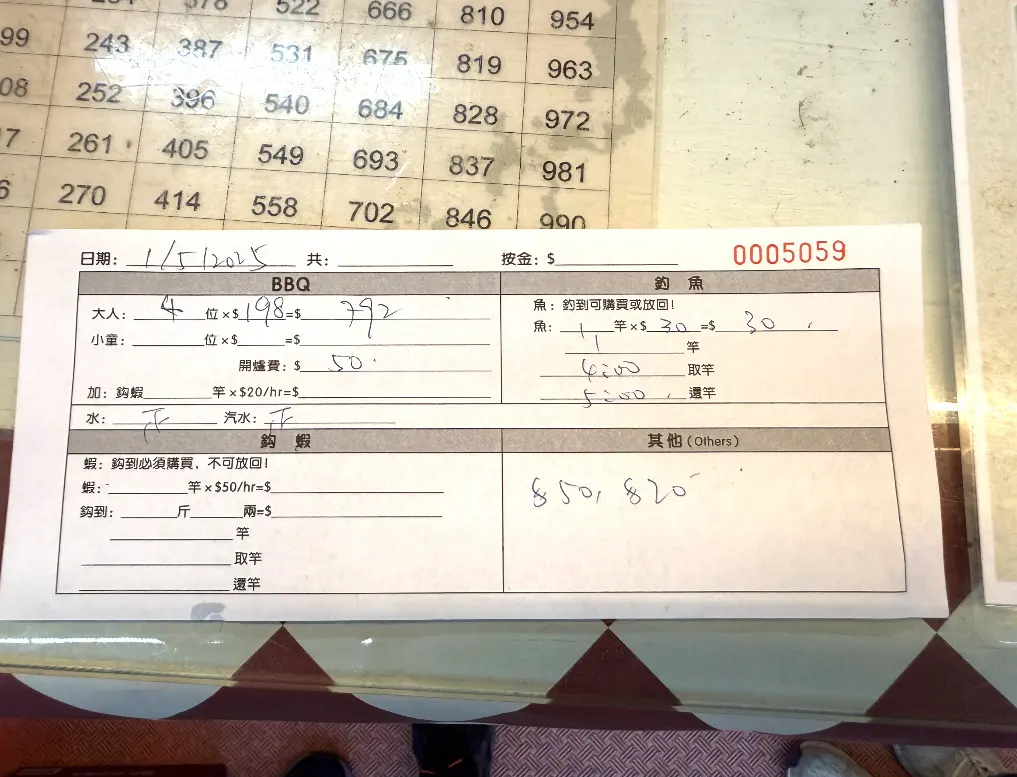 378 522 666 810 954
99 243 387 531 675 819 963
08 252 396 540 684 828 972
7 261 405 549 693 837 981
6 270 414 558 702 846 990
日期: 1/5/2025 共: 按金: $ 0005059
BBQ
大人: 4 位×$ 198 =$ 792
小童: 位×$ =$
開爐費: $ 50
加: 鈎蝦 竿×$20/hr=$
水: 正 汽水: 正
釣 魚
魚: 釣到可購買或放回!
魚: 1 竿×$ 30 =$ 30
1 竿
4:00 取竿
5:00 還竿
鈎 蝦
蝦: 鈎到必須購買, 不可放回!
蝦: 竿×$50/hr=$
鈎到: 斤 兩=$
竿
取竿
還竿
其他 (Others)
$50, $20